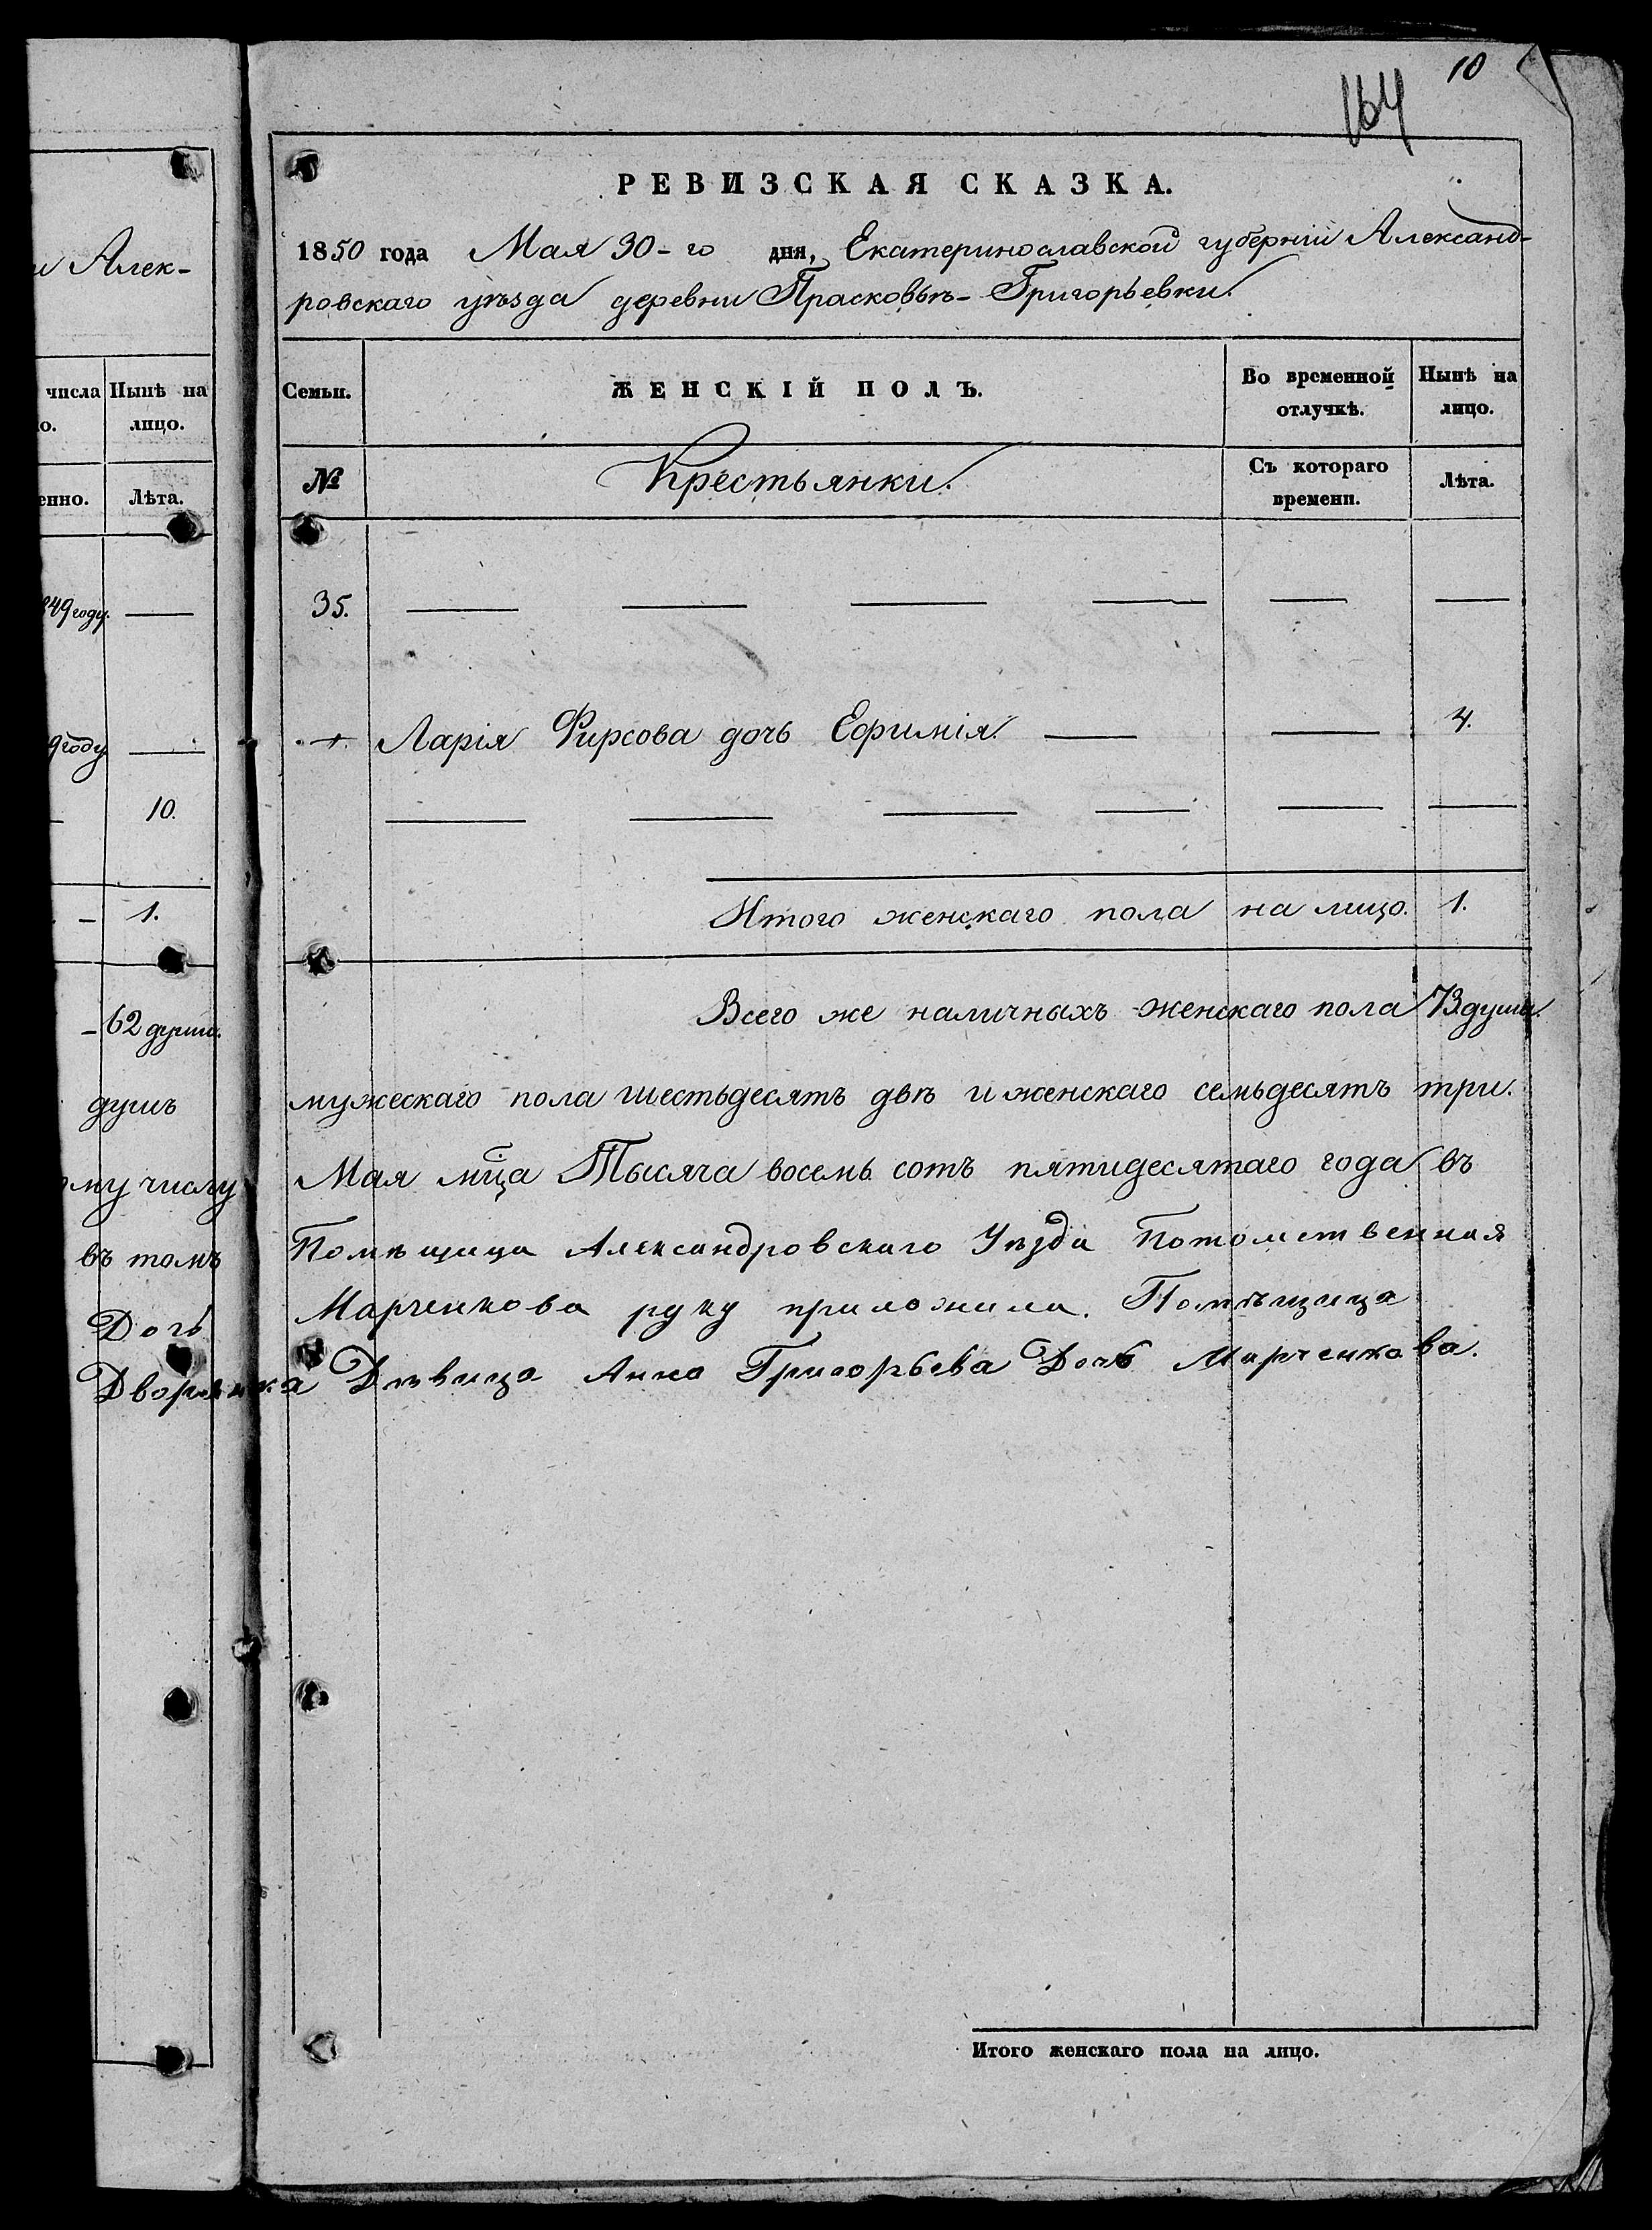 и Алек-
числа Нынѣ на
о. лицо.
енно. Лѣта.
849 году. —
9 году —
— 10.
- 1.
- 62 души.
душъ
ому числу
въ томъ
Дочь
Дворянка
10
164
РЕВИЗСКАЯ СКАЗКА.
1850 года Мая 30-го дня, Екатеринославской губерніи Александ-
ровскаго уѣзда деревни Прасковьѣ-Григорьевки.
Семьи. ЖЕНСКІЙ ПОЛЪ. Во временной отлучкѣ. Нынѣ на лицо.
№ Крестьянки. Съ котораго времени. Лѣта.
35. — — — — — —
Ларія Фирсова дочь Ефимія. — — 4.
— — — — — —
Итого женскаго пола на лицо. 1.
Всего же наличныхъ женскаго пола 73 души.
мужескаго пола шестьдесятъ двѣ и женскаго семьдесятъ три.
Мая мца Тысяча восемь сотъ пятидесятаго года въ
Помѣщица Александровскаго Уѣзда Потомственная
Марченкова руку приложила. Помѣщица
Дѣвица Анна Григорьева Дочь Марченкова.
Итого женскаго пола на лицо.